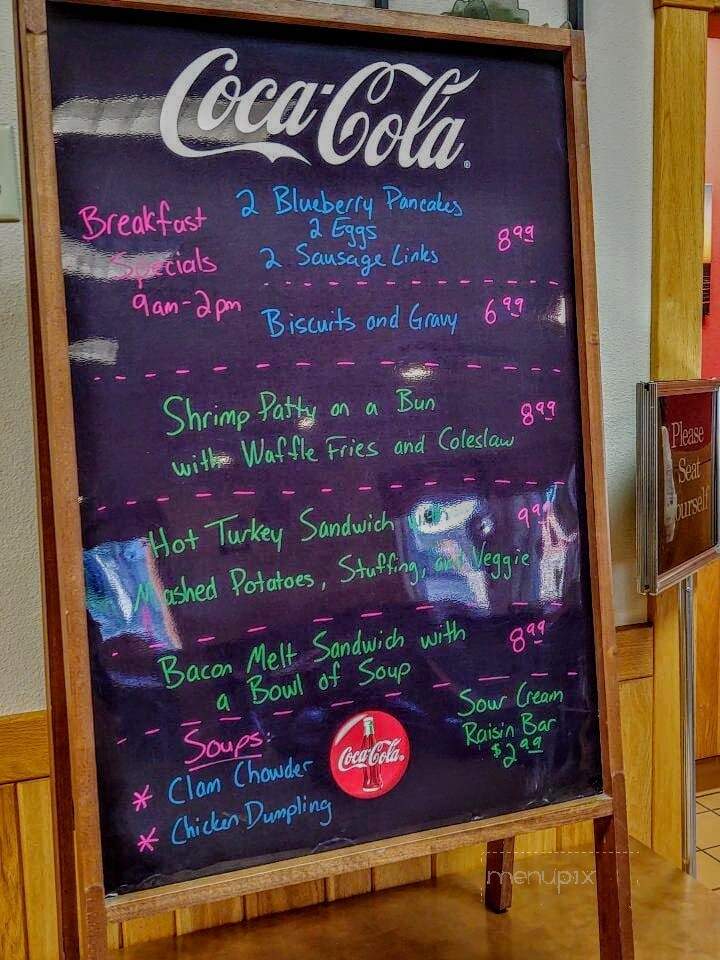 Coca-Cola
Breakfast
Specials
9am-2pm
2 Blueberry Pancakes
2 Eggs
2 Sausage Links
8 99
Biscuits and Gravy 6 99
Shrimp Patty on a Bun 8 99
with Waffle Fries and Coleslaw
Hot Turkey Sandwich with 9 99
Mashed Potatoes, Stuffing, and Veggie
Bacon Melt Sandwich with 8 99
a Bowl of Soup
Soups:
* Clam Chowder
* Chicken Dumpling
Coca-Cola
Sour Cream
Raisin Bar
$2 99
Please
Seat
Yourself
menupix